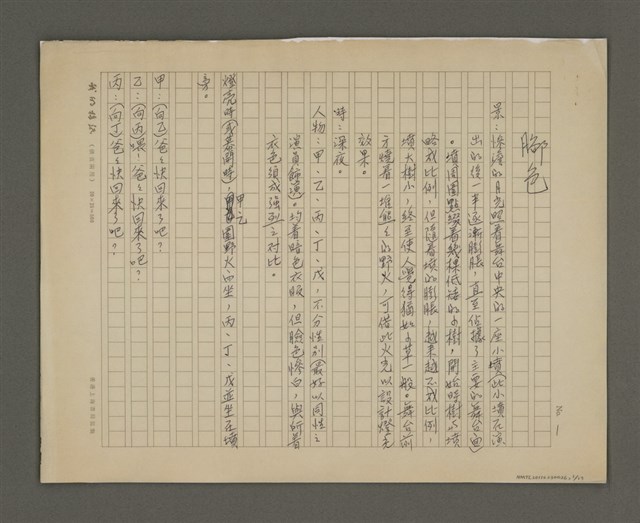 腳色
景：慘澹的月光照著舞台中央的一座小墳（此小墳在演
出的後一半逐漸膨脹，直至佔據了主要的舞台面）
。墳周圍點綴著幾棵低矮的小樹，開始時樹與墳
略成比例，但隨著墳的膨脹，越來越不成比例，
墳大樹小，終至使人覺得猶如小草一般。舞台前
方燒著一堆熊熊的野火，可借此火光以設計燈光
效果。
時：深夜。
人物：甲、乙、丙、丁、戊，不分性別（最好以同性之
演員飾演）。均着暗色衣服，但臉色慘白，與所着
衣色須成強烈之對比。
燈亮時（或幕開時），甲乙圍野火而坐，丙、丁、戊並坐在墳
旁。
甲：（向乙）爸爸快回來了吧？
乙：（向丙）喂！爸爸快回來了吧？
丙：（向丁）爸爸快回來了吧？
No. 1